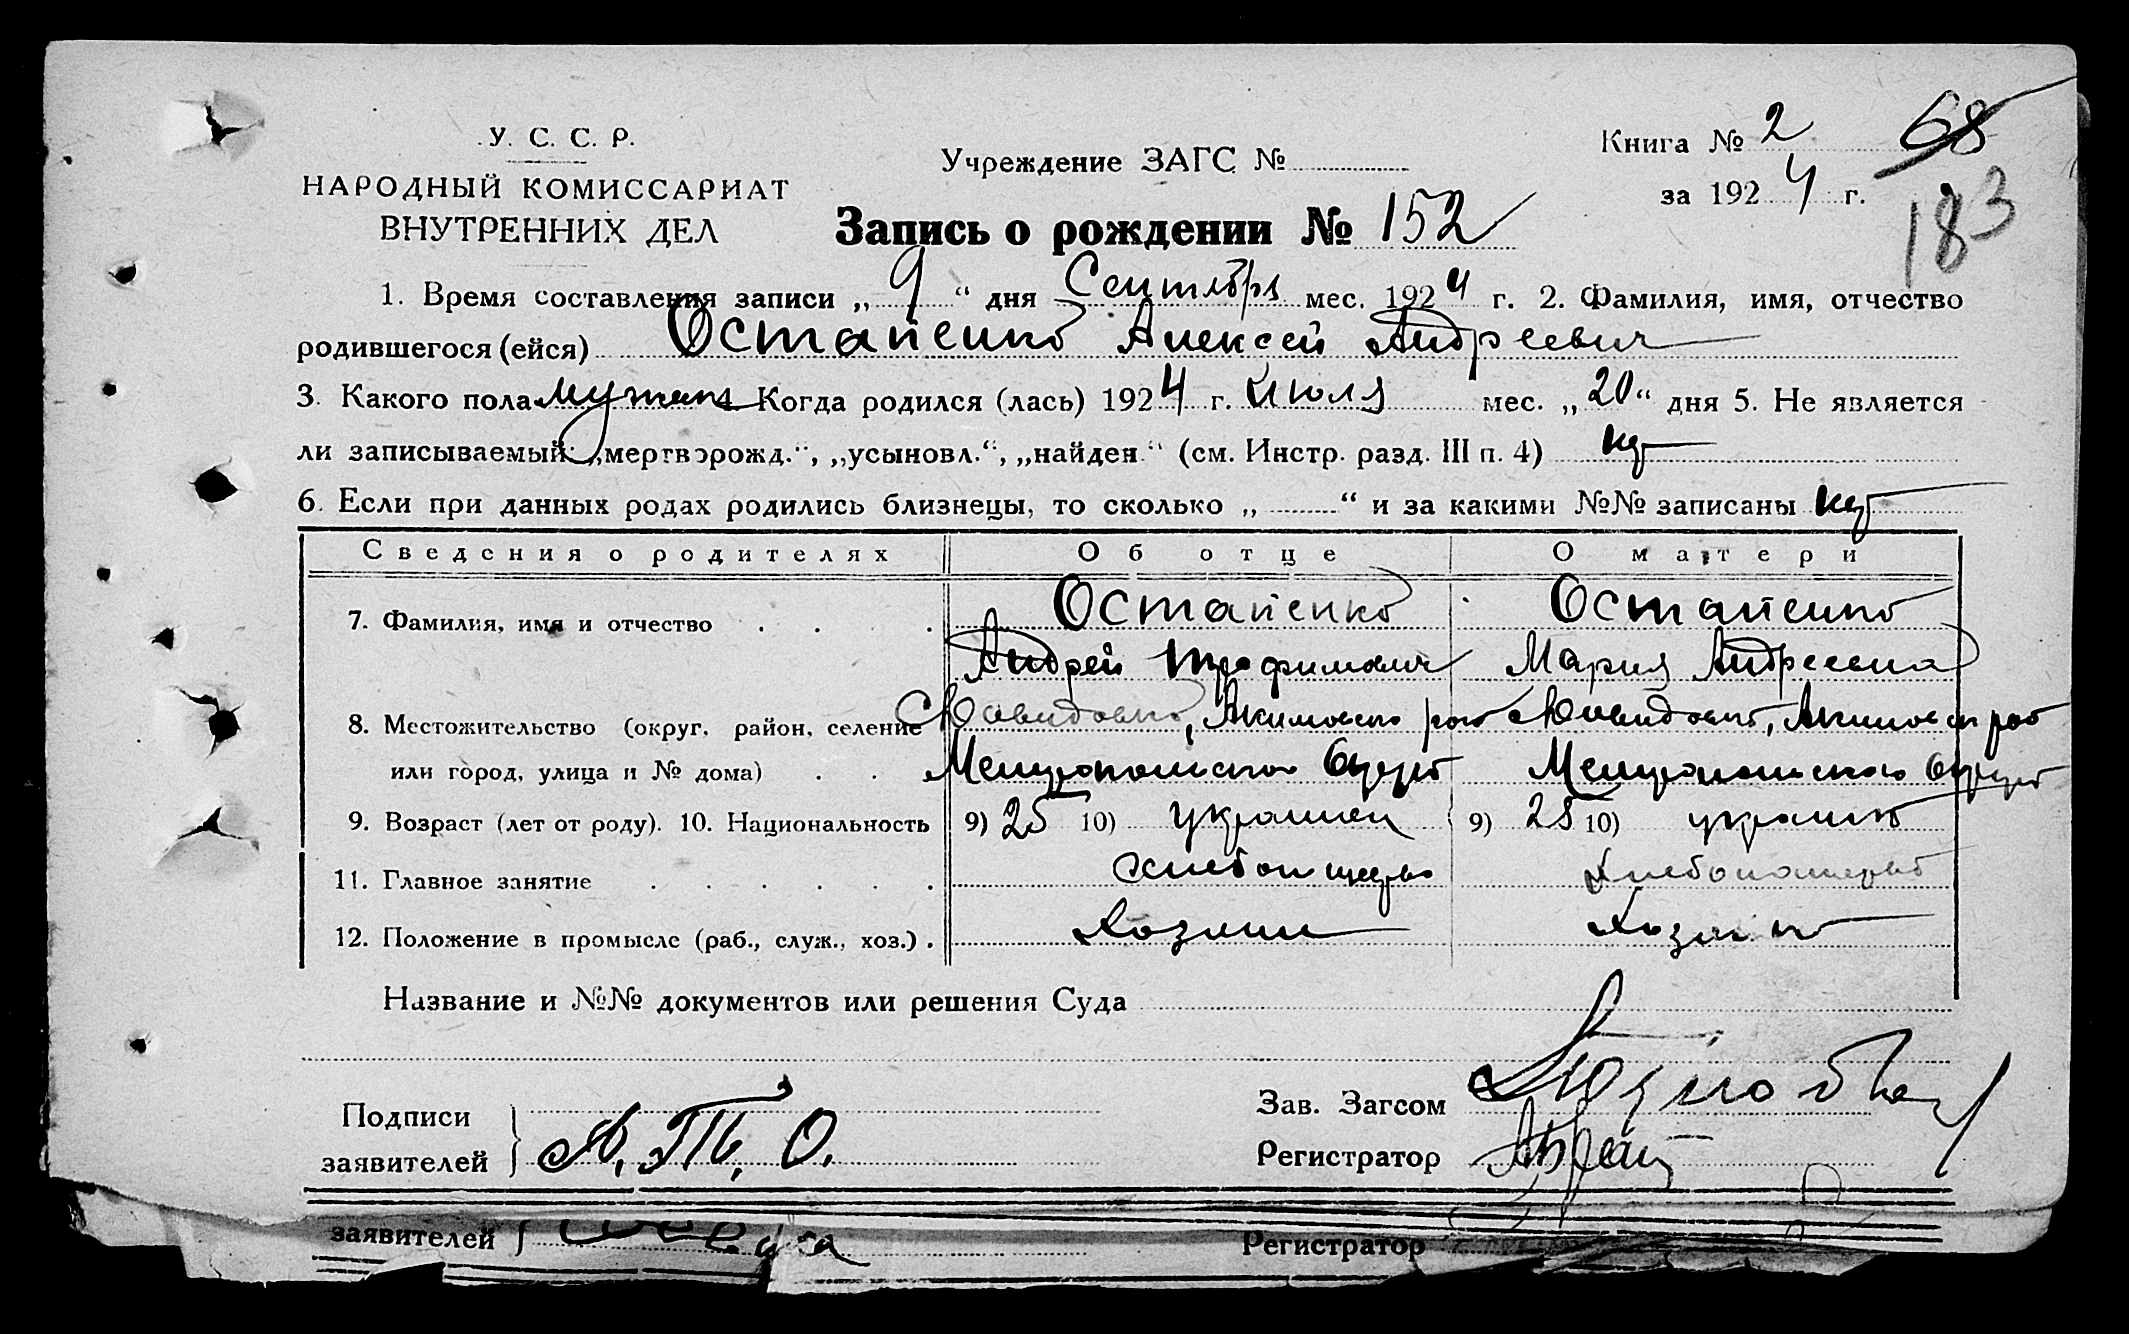 У. С. С. Р.
НАРОДНЫЙ КОМИССАРИАТ
ВНУТРЕННИХ ДЕЛ
Учреждение ЗАГС №
Книга № 2 68
за 1924 г. 183
Запись о рождении № 152
1. Время составления записи „9“ дня Сентября мес. 1924 г. 2. Фамилия, имя, отчество
родившегося (ейся) Остапенко Алексей Андреевич
3. Какого пола мужск 4. Когда родился (лась) 1924 г. Июля мес. „20“ дня 5. Не является
ли записываемый: „мертворожд.“, „усыновл.“, „найден“ (см. Инстр. разд. III п. 4)
6. Если при данных родах родились близнецы, то сколько „ “ и за какими №№ записаны
Сведения о родителях Об отце О матери
7. Фамилия, имя и отчество Остапенко Остапенко
Андрей Трофимович Мария Андреевна
8. Местожительство (округ, район, селение Акимовского рай Акимовск рай
или город, улица и № дома) Мелитопольского Округа Мелитопольского Округа
9. Возраст (лет от роду). 10. Национальность 9) 25 10) украинец 9) 25 10) украинка
11. Главное занятие хлебопашество хлебопашество
12. Положение в промысле (раб., служ., хоз.) Хозяин Хозяйка
Название и №№ документов или решения Суда
Подписи
заявителей А. Т. О.
Зав. Загсом
Регистратор
заявителей Регистратор